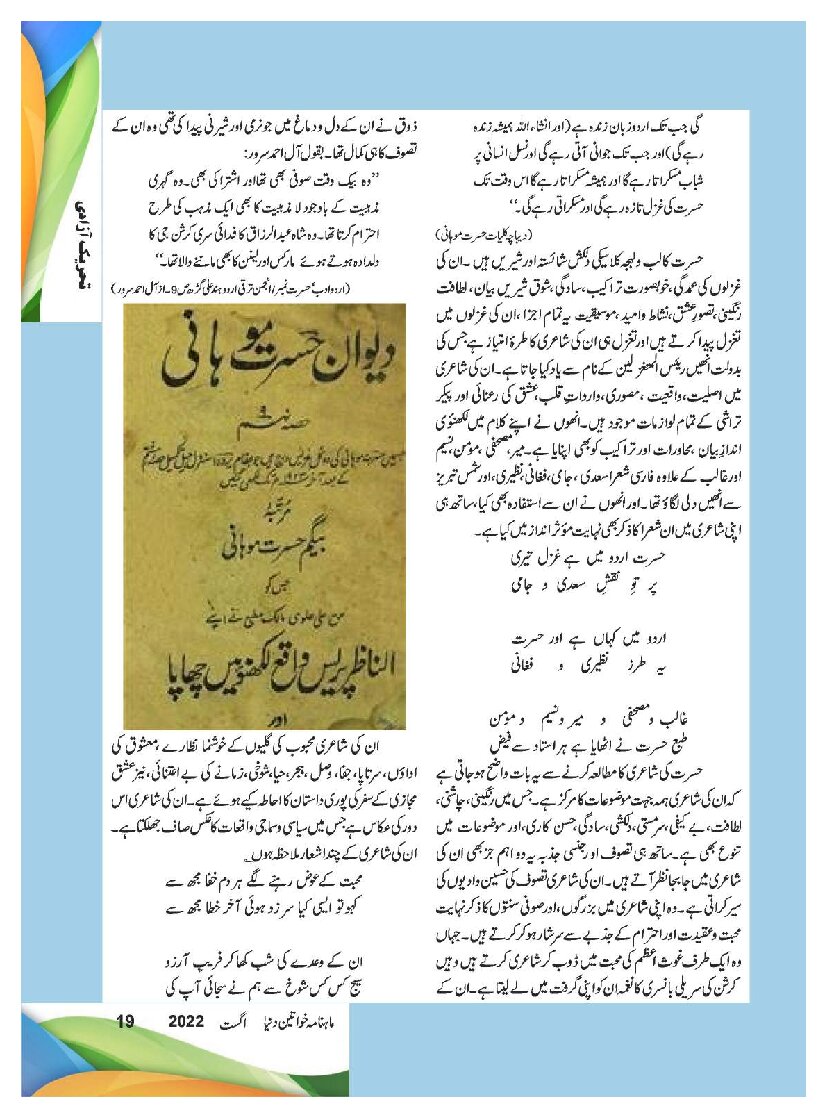 گی جب تک اردو زبان زندہ ہے (اور انشاء اللہ ہمیشہ زندہ
رہے گی) اور جب تک جوانی آتی رہے گی اور نسل انسانی پر
شباب مسکراتا رہے گا اور ہمیشہ مسکراتا رہے گا اس وقت تک
حسرت کی غزل تازہ رہے گی اور مسکراتی رہے گی۔‘‘
(دیباچہ کلیات حسرت موہانی)
حسرت کا لب و لہجہ کلاسیکی دلکش شائستہ اور شیریں ہیں ۔ ان کی
غزلوں کی عمدگی، خوبصورت تراکیب، سادگی، شوق شیریں بیان، لطافت
رنگینی، تصورِ عشق، نشاط و امید، موسیقیت یہ تمام اجزا، ان کی غزلوں میں
تغزل پیدا کرتے ہیں اور تغزل ہی ان کی شاعری کا طرۂ امتیاز ہے جس کی
بدولت انھیں رئیس المتغزلین کے نام سے یاد کیا جاتا ہے۔ ان کی شاعری
میں اصلیت، واقعیت ، مصوری، وارداتِ قلب، عشق کی رعنائی اور پیکر
تراشی کے تمام لوازمات موجود ہیں۔ انھوں نے اپنے کلام میں لکھنؤی
اندازِ بیان، محاورات اور تراکیب کو بھی اپنایا ہے۔ میر، مصحفی، مومن، نسیم
اور غالب کے علاوہ فارسی شعرا سعدی، جامی، فغانی، نظیری، اور شمس تبریز
سے انھیں دلی لگاؤ تھا۔ اور انھوں نے ان سے استفادہ بھی کیا، ساتھ ہی
اپنی شاعری میں ان شعرا کا ذکر بھی نہایت مؤثر انداز میں کیا ہے۔
حسرت اردو میں ہے غزل تیری
پر توِ نقشِ سعدی و جامی
اردو میں کہاں ہے اور حسرت
یہ طرز نظیری و فغانی
غالب و مصحفی و میر و نسیم و مومن
طبع حسرت نے اٹھایا ہے ہر استاد سے فیض
حسرت کی شاعری کا مطالعہ کرنے سے یہ بات واضح ہو جاتی ہے
کہ ان کی شاعری ہمہ جہت موضوعات کا مرکز ہے۔ جس میں رنگینی، چاشنی،
لطافت، بے کیفی، سرمستی، دلکشی، سادگی، حسن کاری، اور موضوعات میں
تنوع بھی ہے۔ ساتھ ہی تصوف اور جنسی جذبہ یہ دو اہم جز بھی ان کی
شاعری میں جا بجا نظر آتے ہیں۔ ان کی شاعری تصوف کی حسین وادیوں کی
سیر کراتی ہے۔ وہ اپنی شاعری میں بزرگوں، اور صوفی سنتوں کا ذکر نہایت
محبت و عقیدت اور احترام کے جذبے سے سرشار ہو کر کرتے ہیں۔ جہاں
وہ ایک طرف غوث اعظم کی محبت میں ڈوب کر شاعری کرتے ہیں وہیں
کرشن کی سریلی بانسری کا نغمہ ان کو اپنی گرفت میں لے لیتا ہے۔ ان کے
ذوق نے ان کے دل و دماغ میں جو نرمی اور شیرنی پیدا کی تھی وہ ان کے
تصوف کا ہی کمال تھا۔ بقول آل احمد سرور:
’’وہ بیک وقت صوفی بھی تھا اور اشتراکی بھی۔ وہ گہری
مذہبیت کے باوجود لا مذہبیت کا بھی ایک مذہب کی طرح
احترام کرتا تھا۔ وہ شاہ عبدالرزاق کا فدائی سری کرشن جی کا
دلدادہ ہوتے ہوئے مارکس اور لینن کا بھی ماننے والا تھا۔‘‘
(اردو ادب حسرت نمبر، انجمن ترقی اردو ہند علی گڑھ ص 9۔ از سل احمد سرور)
دیوان حسرت موہانی
حصہ نہم
مرتبہ
بیگم حسرت موہانی
جس کو
علی علوی مالک مطبع نے اپنے
الناظر پریس واقع لکھنؤ میں چھاپا
اور
ان کی شاعری محبوب کی گلیوں کے خوشنما نظارے، معشوق کی
اداؤں، سرتاپا، جفا، وصل، ہجر، حیا، شوخی، زمانے کی بے اعتنائی، نیز عشق
مجازی کے سفر کی پوری داستان کا احاطہ کیے ہوئے ہے۔ ان کی شاعری اس
دور کی عکاس ہے جس میں سیاسی و سماجی واقعات کا عکس صاف جھلکتا ہے۔
ان کی شاعری کے چند اشعار ملاحظہ ہوں۔
محبت کے عوض رہنے لگے ہر دم خفا مجھ سے
کہو تو ایسی کیا سرزد ہوئی آخر خطا مجھ سے
ان کے وعدے کی شب کھا کر فریبِ آرزو
سیج کس کس شوخ سے ہم نے سجائی آپ کی
تحریک آزادی
ماہنامہ خواتین دنیا اگست 2022 19